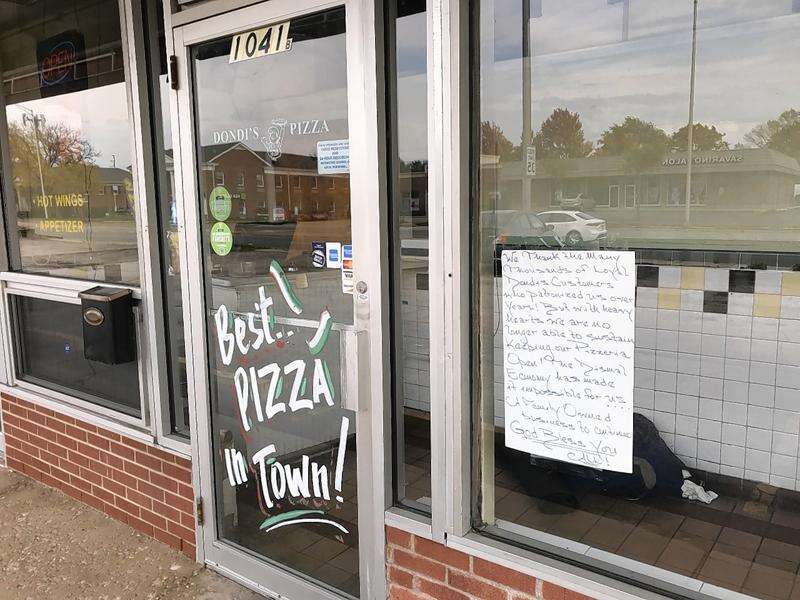 OPEN
1041
DONDI'S PIZZA
HOT WINGS
APPETIZER
Best..
PIZZA
In Town!
SAVARINO SALON
We Thank the Many
Thousands of Loyal
Dondi's Customers
who patronized us over
years! But with heavy
hearts we are no
longer able to sustain
Keeping our Pizzeria
Open! The Dismal
Economy has made
it impossible for us...
a Family Owned
business to continue
God Bless You
All!